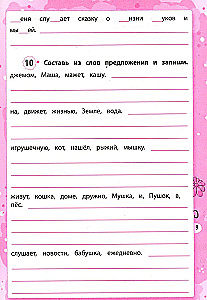 __еня слу__ает сказку о __изни __уков и
мы__ей.
10* Составь из слов предложения и запиши.
джемом, Маша, мажет, кашу.
на, движет, жизнью, Земле, вода.
игрушечную, кот, нашёл, рыжий, мышку.
живут, кошка, доме, дружно, Мушка, и, Пушок, в,
пёс.
слушает, новости, бабушка, ежедневно.
9